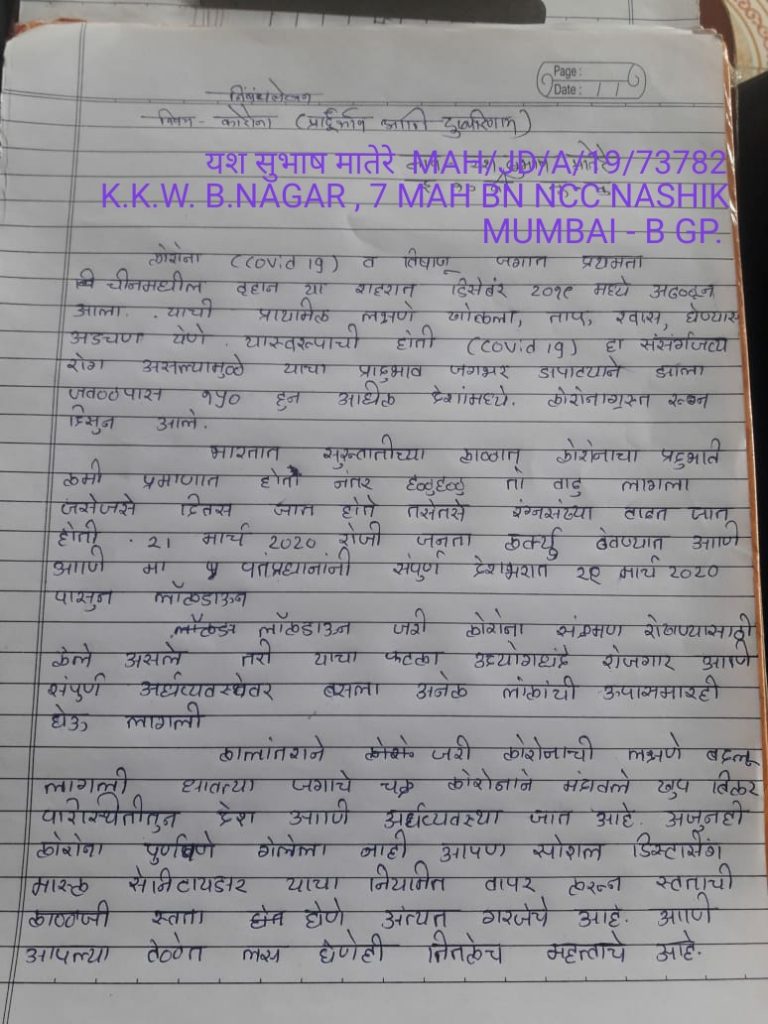 Page :
Date : / /
निबंधलेखन
विषय - कोरोना (प्रादुर्भाव आणि दुष्परिणाम)
यश सुभाष मातेरे MAH/JD/A/19/73782
K.K.W. B.NAGAR , 7 MAH BN NCC NASHIK
MUMBAI - B GP.
कोरोना (Covid 19) व विषाणू जगात प्रथमता
चीनमधील वुहान या शहरात डिसेंबर २०१९ मध्ये अढळून
आला. याची प्राथमिक लक्षणे खोकला, ताप, श्वास, घेण्यास
अडचण येणे. यास्वरूपाची होती (Covid 19) हा संसर्गजन्य
रोग असल्यामुळे याचा प्रादुभाव जगभर झपाट्याने झाला
जवळपास १५० हुन अधिक देशांमध्ये. कोरोनाग्रस्त रूग्न
दिसुन आले.
भारतात सुरूवातीच्या काळात कोरोनाचा प्रदुभाव
कमी प्रमाणात होता नंतर हळुहळु तो वाढु लागला
जसेजसे दिवस जात होते तसेतसे रूग्नसंख्या वाढत जात
होती. 21 मार्च 2020 रोजी जनता कर्फ्यु ठेवण्यात आणि
आणि मा पतंप्रधानांनी संपुर्ण देशभरात २९ मार्च 2020
पासुन लॉकडाऊन
लॉकडाऊन जरी कोरोना संक्रमण रोखण्यासाठी
केले असले तरी याचा फटका उद्योगधंदे रोजगार आणि
संपुर्ण अर्थव्यवस्थेवर बसला अनेक लोकांची ऊपासमारही
होऊ लागली
कालांतराने जरी कोरोनाची लक्षणे बदलू
लागली धावत्या जगाचे चक्र कोरोनाने मंदावले खुप बिकट
परिस्थीतीतुन देश आणि अर्थव्यवस्था जात आहे. अजुनही
कोरोना पुर्णपणे गेलेला नाही आपण सोशल डिस्टन्सिंग
मास्क सॅनिटायझर याचा नियमित वापर करून स्वताची
काळजी स्वता घेणे अत्यंत गरजेचे आहे. आणि
आपल्या वेळेत लस घेणेही तितकेच महत्वाचे आहे.